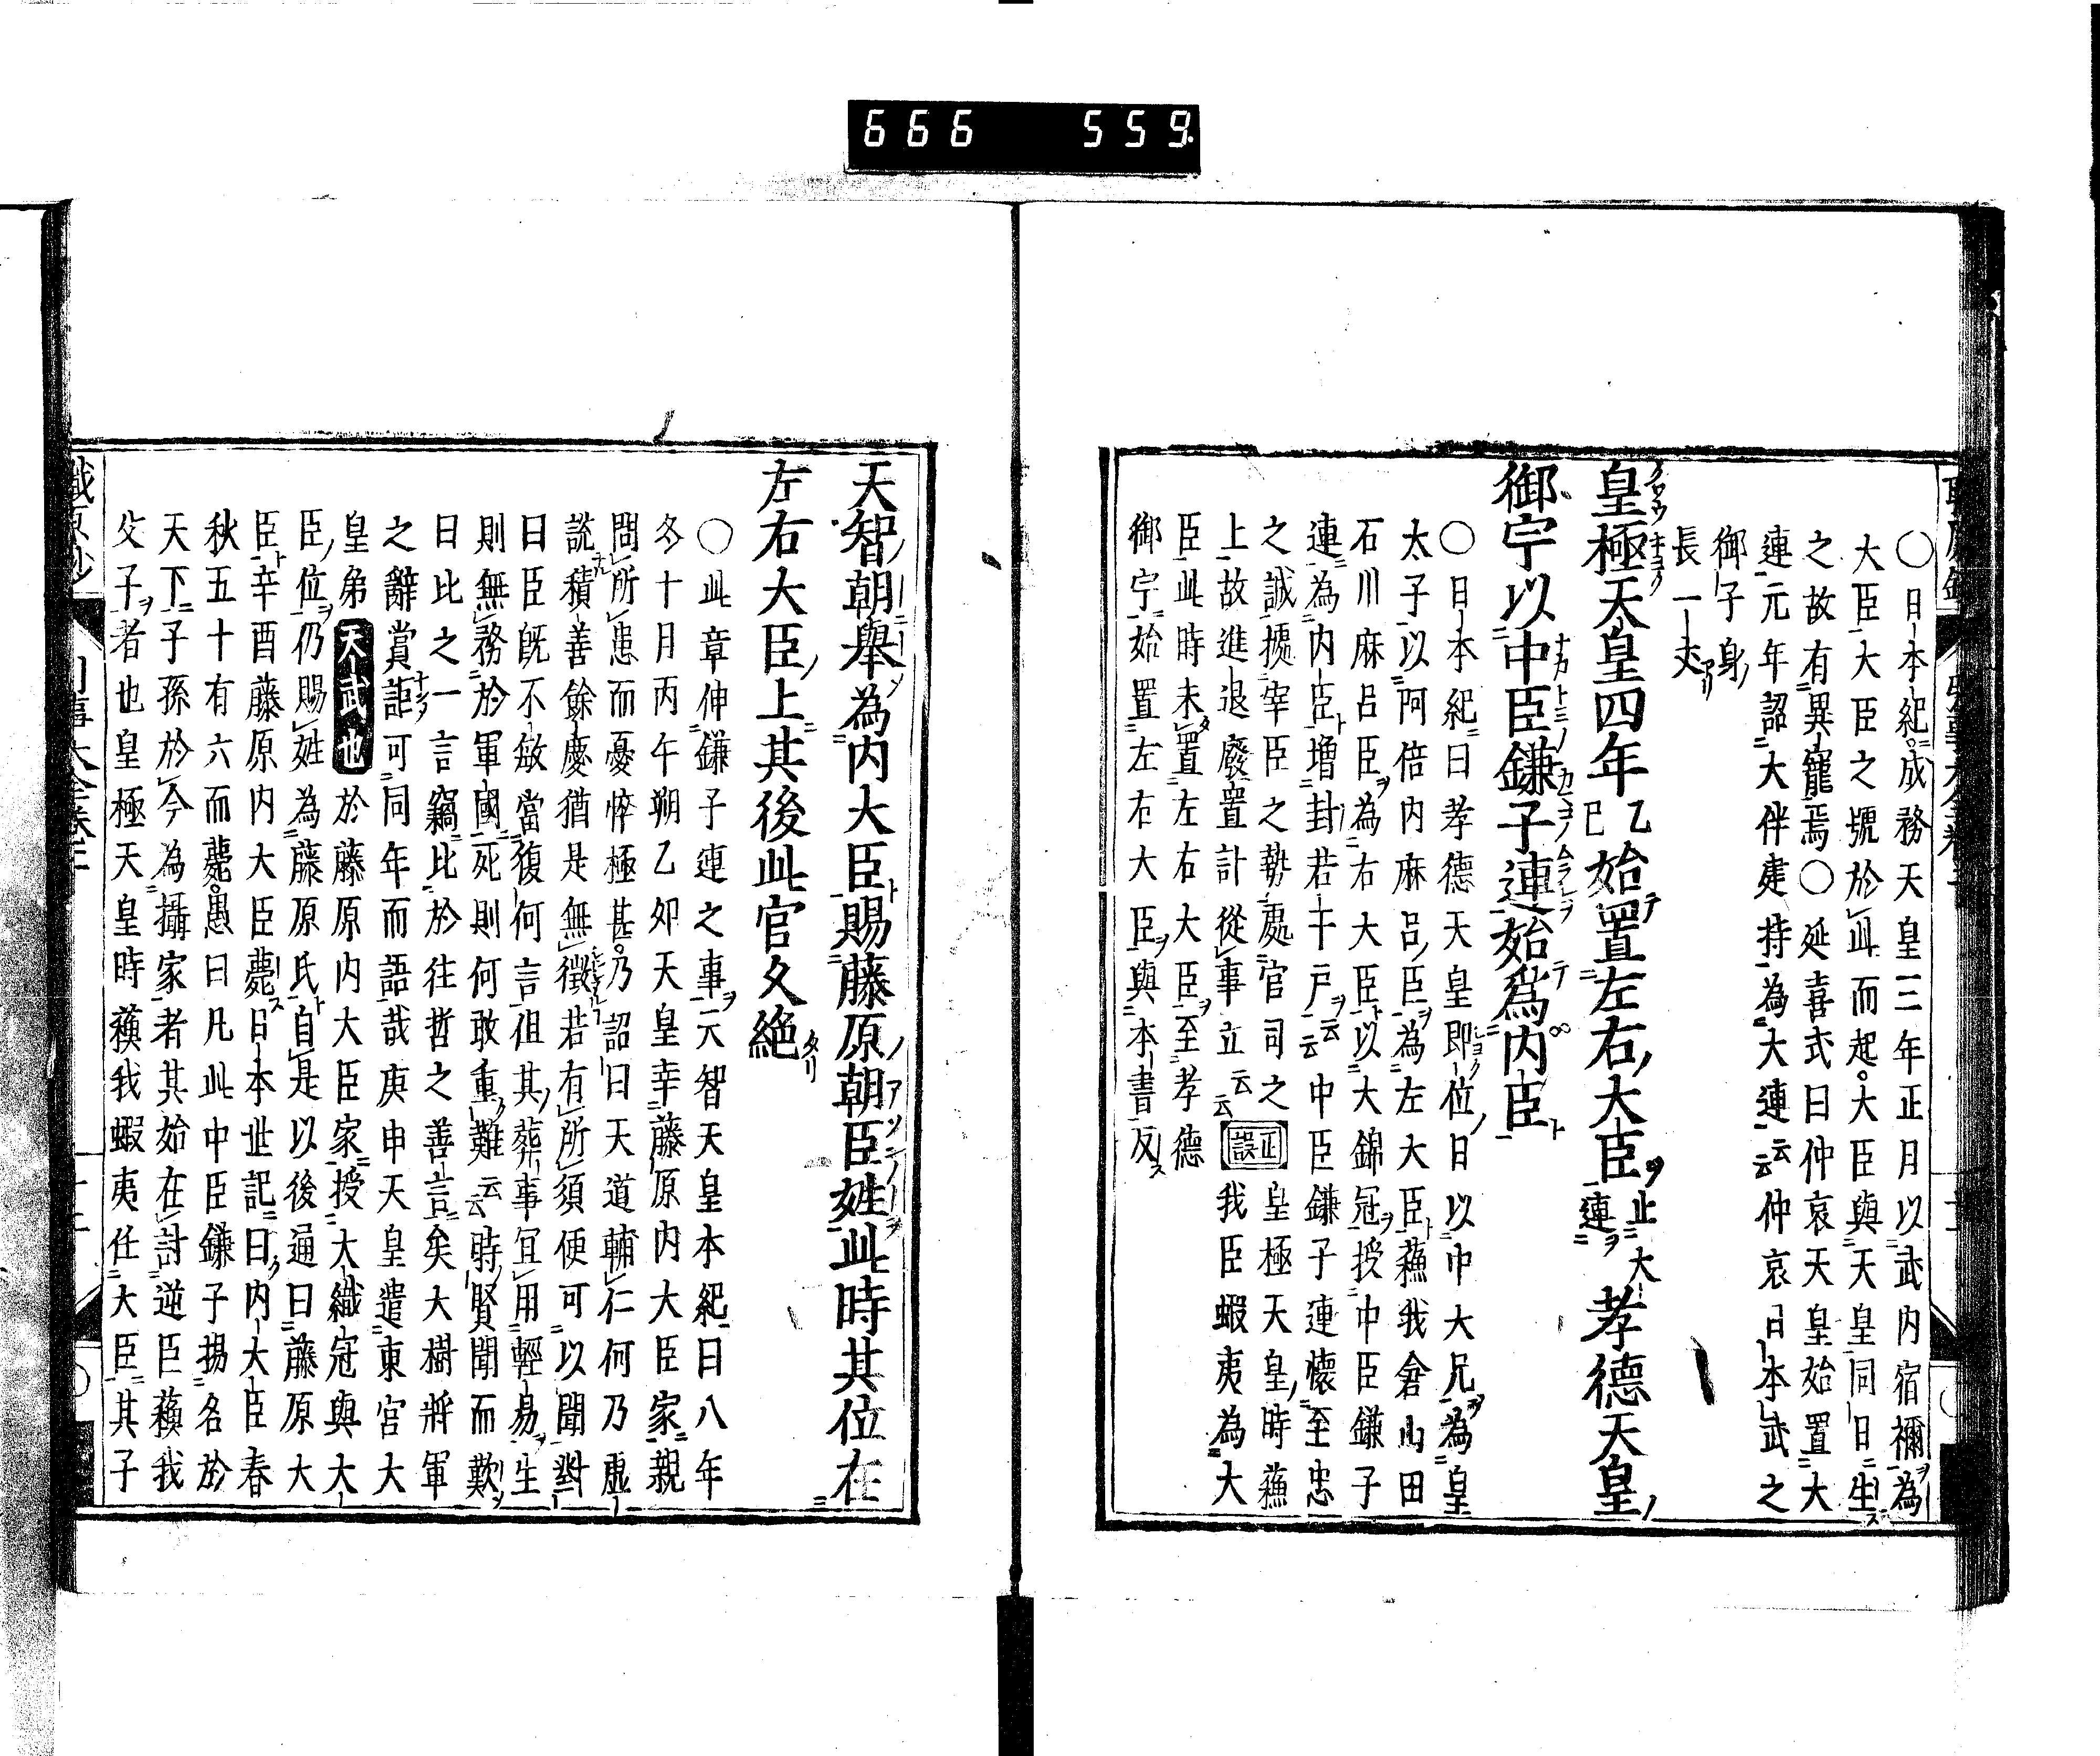 666 559
○日本紀成務天皇三年正月以武内宿禰為
大臣大臣之號於此而起大臣與天皇同日生
之故有異寵焉○延喜式曰仲哀天皇始置大
連元年詔大伴建持為大連云云仲哀日本武之
御子身
長一丈
皇極天皇四年乙巳始置左右大臣止大連孝德天皇
御宇以中臣鎌子連始爲内臣
○日本紀曰孝德天皇即位日以中大兄為皇
太子以阿倍内麻呂臣為左大臣蘓我倉山田
石川麻呂臣為右大臣以大錦冠授中臣鎌子
連為内臣增封若干戸云云中臣鎌子連懷至忠
之誠據宰臣之勢處官司之
上故進退廢置計從事立云云正誤皇極天皇時蘓
我臣蝦夷為大
臣此時未置左右大臣至孝德
御宇始置左右大臣與本書反
天智朝舉為内大臣賜藤原朝臣姓此時其位在
左右大臣上其後此官久絶
○此章伸鎌子連之事天智天皇本紀曰八年
冬十月丙午朔乙卯天皇幸藤原内大臣家親
問所患而憂悴極甚乃詔曰天道輔仁何乃虚
説積善餘慶猶是無徵若有所須便可以聞對
曰臣既不敏當復何言但其葬事宜用輕易生
則無務於軍國死則何敢重難云云時賢聞而歎
曰比之一言竊比於往哲之善言矣大樹將軍
之辭賞詎可同年而語哉庚申天皇遣東宮大
皇弟天武也於藤原内大臣家授大織冠與大
臣位仍賜姓為藤原氏自是以後通曰藤原大
臣辛酉藤原内大臣薨日本世記曰内大臣春
秋五十有六而薨愚曰凡此中臣鎌子揚名於
天下子孫於今為攝家者其始在討逆臣蘓我
父子者也皇極天皇時蘓我蝦夷任大臣其子